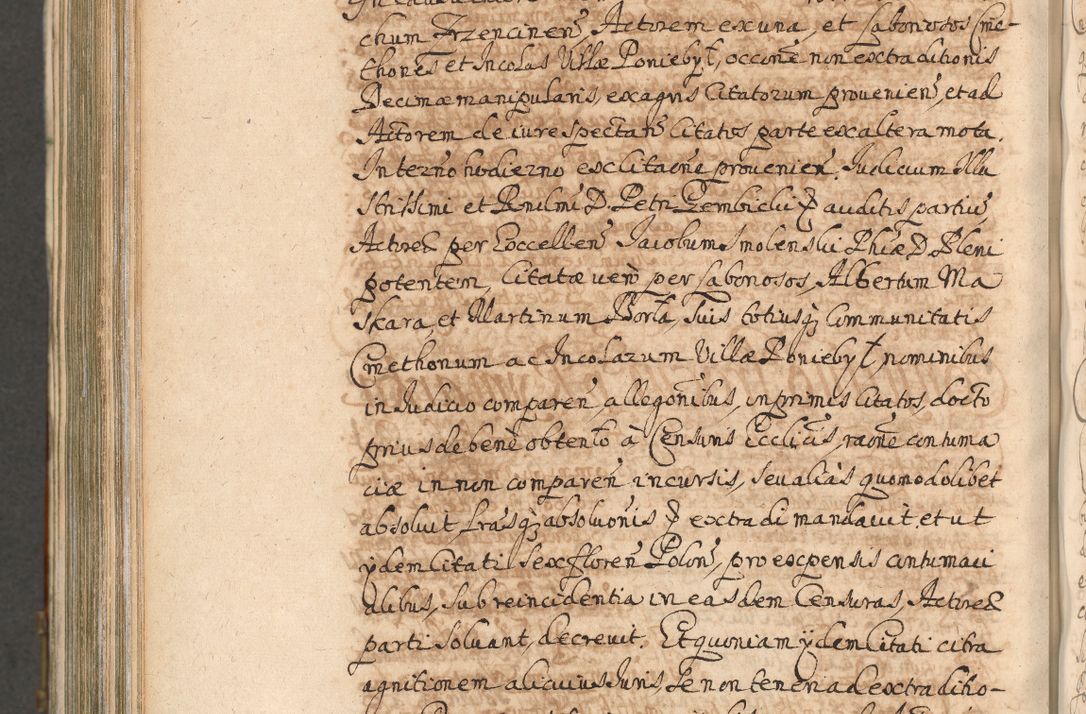 chum Trzencinen, Actorem ex una, et Labonosos Cme-
thones et Incolas Villæ Poniebył, occone non extraditionis
Decimæ manipularis, ex agris Citatorum provenien, et ad
Actorem de iure spectan Citatos parte ex altera mota.
In termo hodierno ex citacne provenien. Iudicium Illu
strissimi et Rndmi D. Petri Gembicki auditis partius
Actorea per Excellen Iacobum Smolenski Phiæ D. Pleni
potentem, Citatæ vero per Labonosos, Albertum Ma
skara, et Martinum Borla, suis totiusq Communitatis
Cmethonum ac Incolarum Villæ Poniebył, nominibus
in Iudicio comparen, allegonibus, inprimis citatos, docto
prius de bene obtento à Censuris Ecclicis, raone contuma
ciæ in non comparen incursis, seu aliàs quomodolibet
absolvit, Lrasq absolvonis extradi mandavit, et ut
ydem Citati sex floren Polon, pro expensis contumaci
alibus, sub reincidentia in easdem Censuras, Actorea
parti solvant, decrevit. Et quoniam ydem Citati citra
agnitionem alicuius Iuris se non teneri ad extraditio-